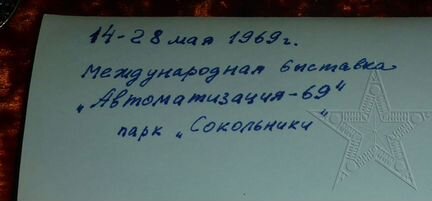 14-28 мая 1969г.
Международная выставка
„Автоматизация-69"
парк „Сокольники"